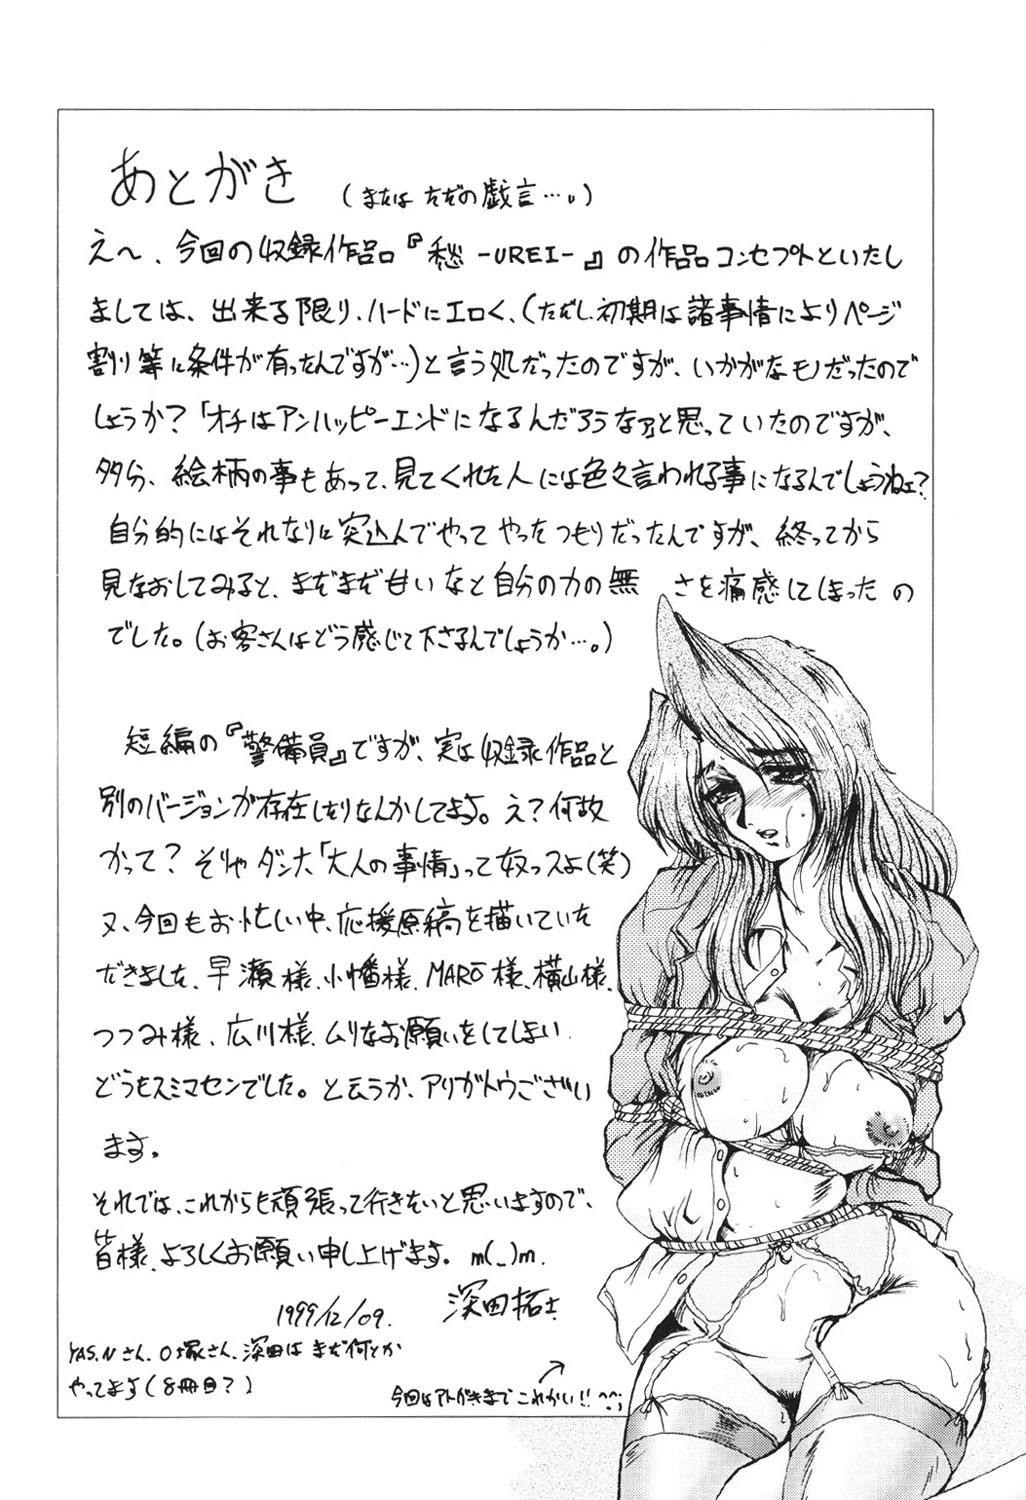 あとがき (またはただの戯言…。)
え〜、今回の収録作品『愁 -UREI- 』の作品コンセプトといたし
ましては、出来る限り、ハードにエロく、(ただし初期は諸事情によりページ
割り等に条件が有ったんですが…)と言う処だったのですが、いかがなモノだったので
しょうか?「オチはアンハッピーエンドになるんだろうなァ」と思っていたのですが、
多分、絵柄の事もあって、見てくれた人には色々言われる事になるんでしょうねェ?
自分的にはそれなりに突込んでやって やったつもりだったんですが、終ってから
見なおしてみると、まだまだ甘いなと自分の力の無 さを痛感してしまったの
でした。(お客さんはどう感じて下さるんでしょうか…。)
短編の『警備員』ですが、実は収録作品と
別のバージョンが存在したりなんかしてます。え?何故
かって?そりゃダンナ「大人の事情」って奴っスよ(笑)
又、今回もお忙しい中、応援原稿を描いていた
だきました、早瀬様、小幡様、MARO様、横山様、
つつみ様、広川様、ムリなお願いをしてしまい
どうもスミマセンでした。と云うか、アリガトウござい
ます。
それでは、これからも頑張って行きたいと思いますので、
皆様、よろしくお願い申し上げます。m(_)m.
1999/12/09. 深田拓士
YAS.Nさん、O塚さん、深田は まだ何とか
やってます(8冊目?)
今回はアトがきまで これかい!! ^^;